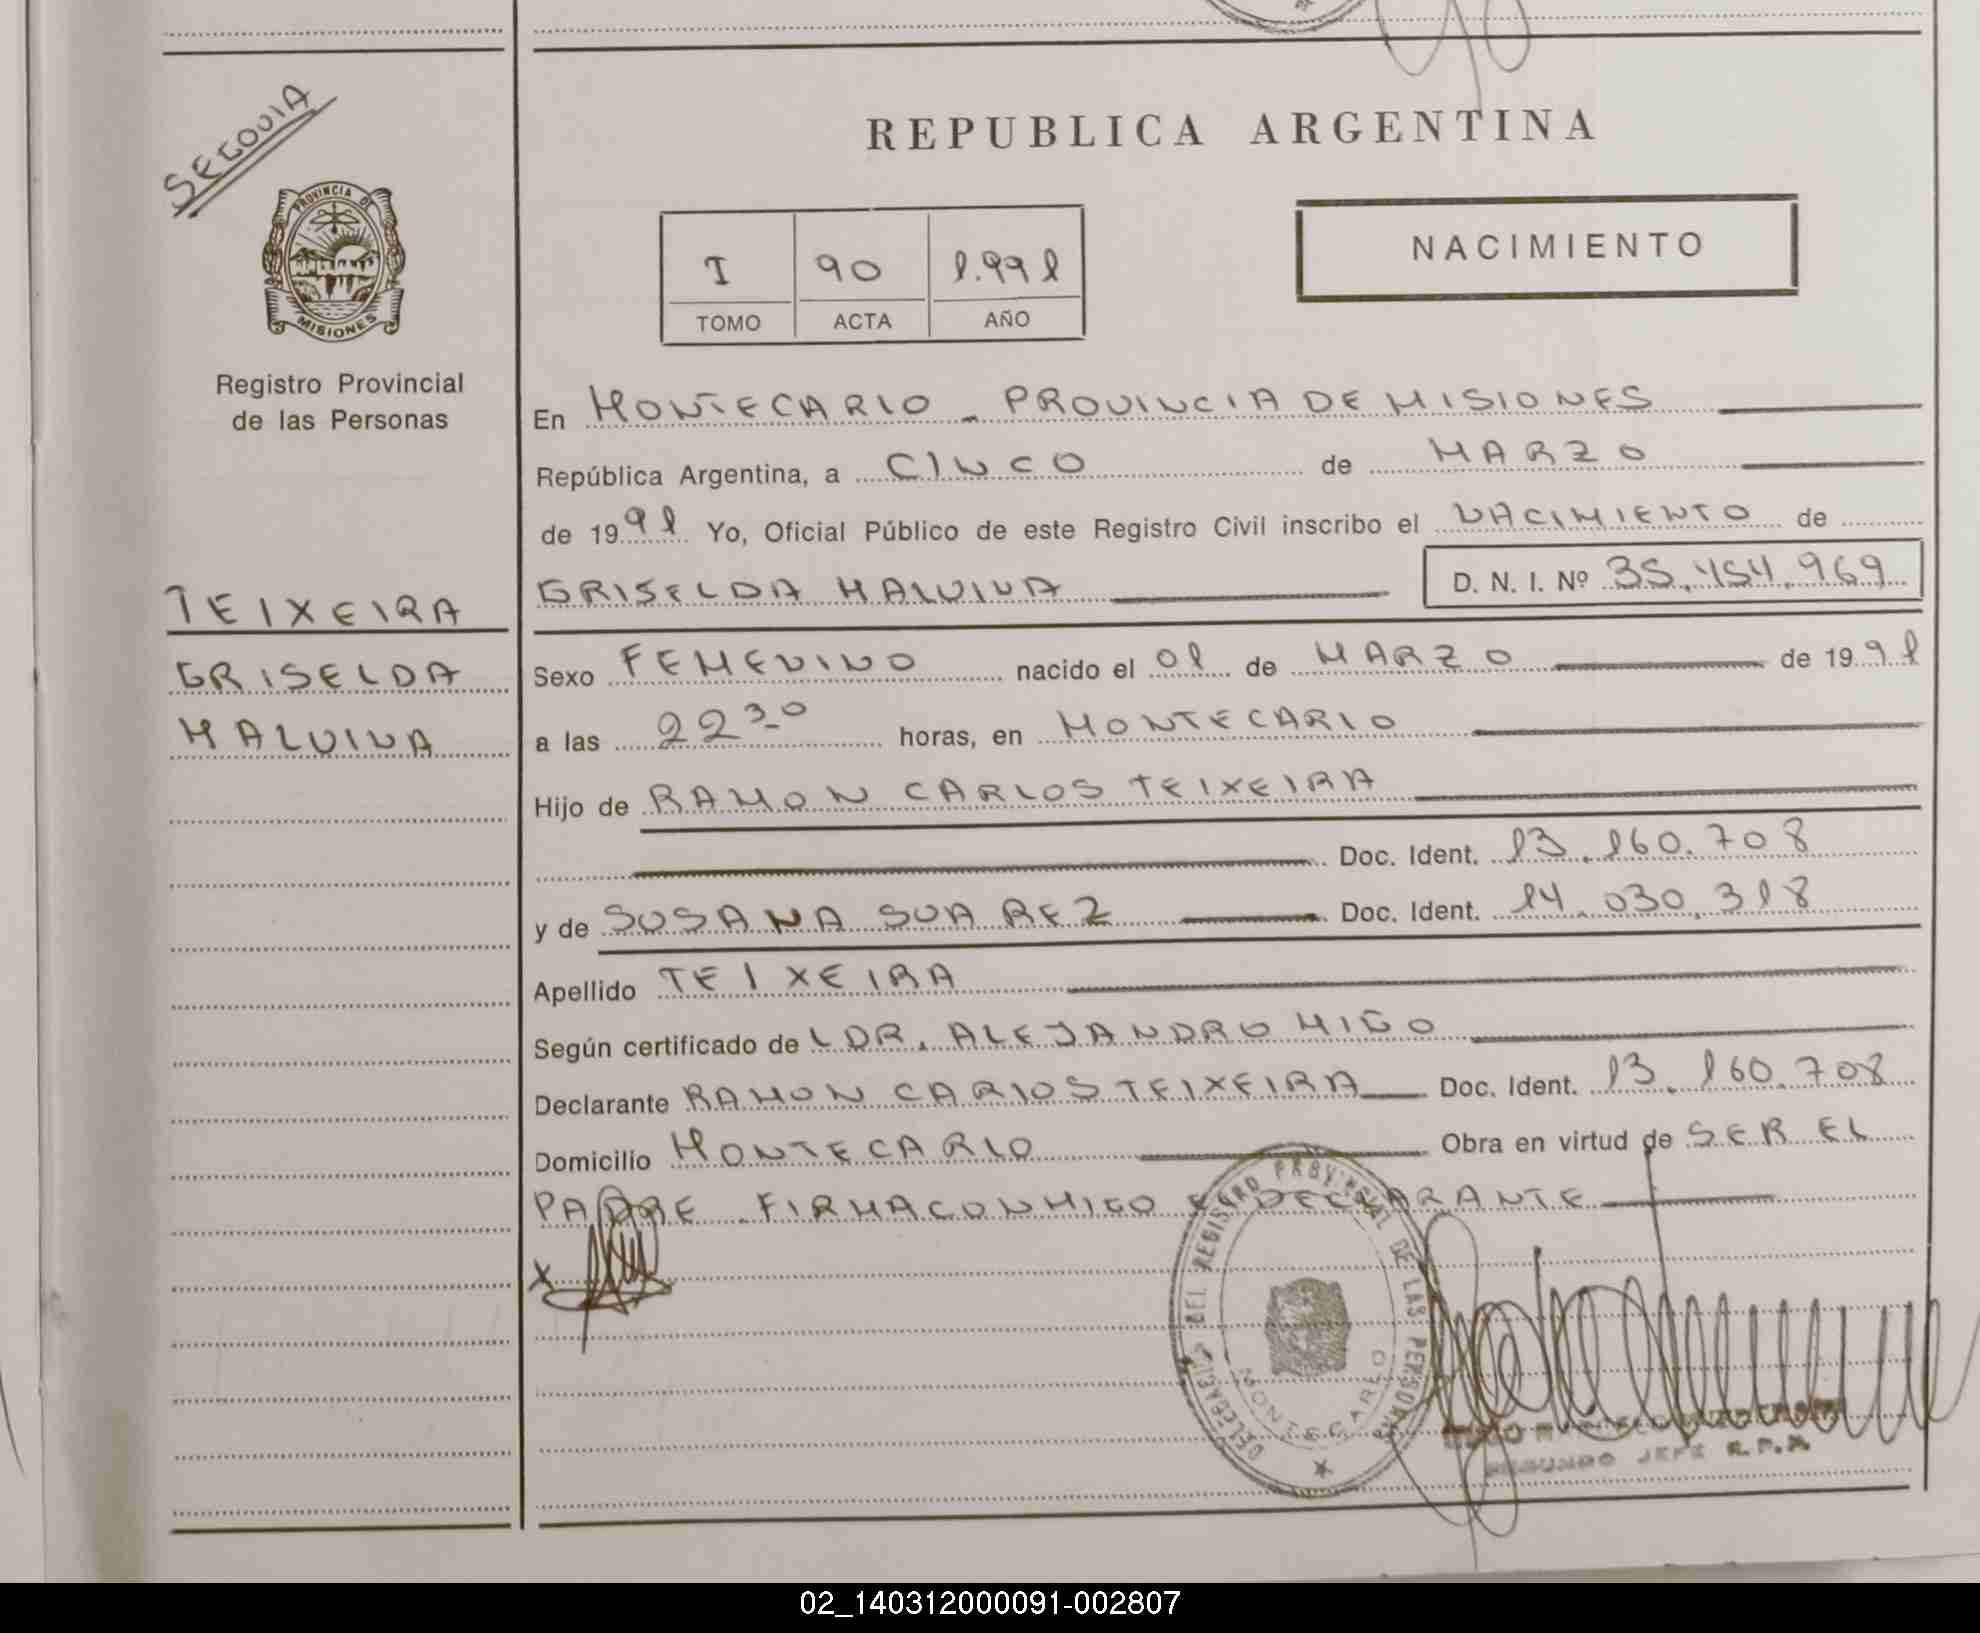 SEGOVIA
PROVINCIA DE
MISIONES
Registro Provincial
de las Personas
TEIXEIRA
GRISELDA
MALVINA
REPUBLICA ARGENTINA
I 90 1.991
TOMO ACTA AÑO
NACIMIENTO
En MONTECARLO - PROVINCIA DE MISIONES
República Argentina, a CINCO de MARZO
de 1991 Yo, Oficial Público de este Registro Civil inscribo el NACIMIENTO de
GRISELDA MALVINA D. N. I. Nº 35.454.969
Sexo FEMENINO nacido el 01 de MARZO de 1991
a las 22 30 horas, en MONTECARLO
Hijo de RAMON CARLOS TEIXEIRA
Doc. Ident. 13.160.708
y de SUSANA SUAREZ Doc. Ident. 14.030.318
Apellido TEIXEIRA
Según certificado de LDR. ALEJANDRO MIÑO
Declarante RAMON CARLOS TEIXEIRA Doc. Ident. 13.160.708
Domicilio MONTECARLO Obra en virtud de SER EL
PADRE. FIRMA CONMIGO EL DECLARANTE
X
DELEGACION DEL REGISTRO PROVINCIAL DE LAS PERSONAS
MONTECARLO
SEGUNDO JEFE R.P.P.
02_140312000091-002807